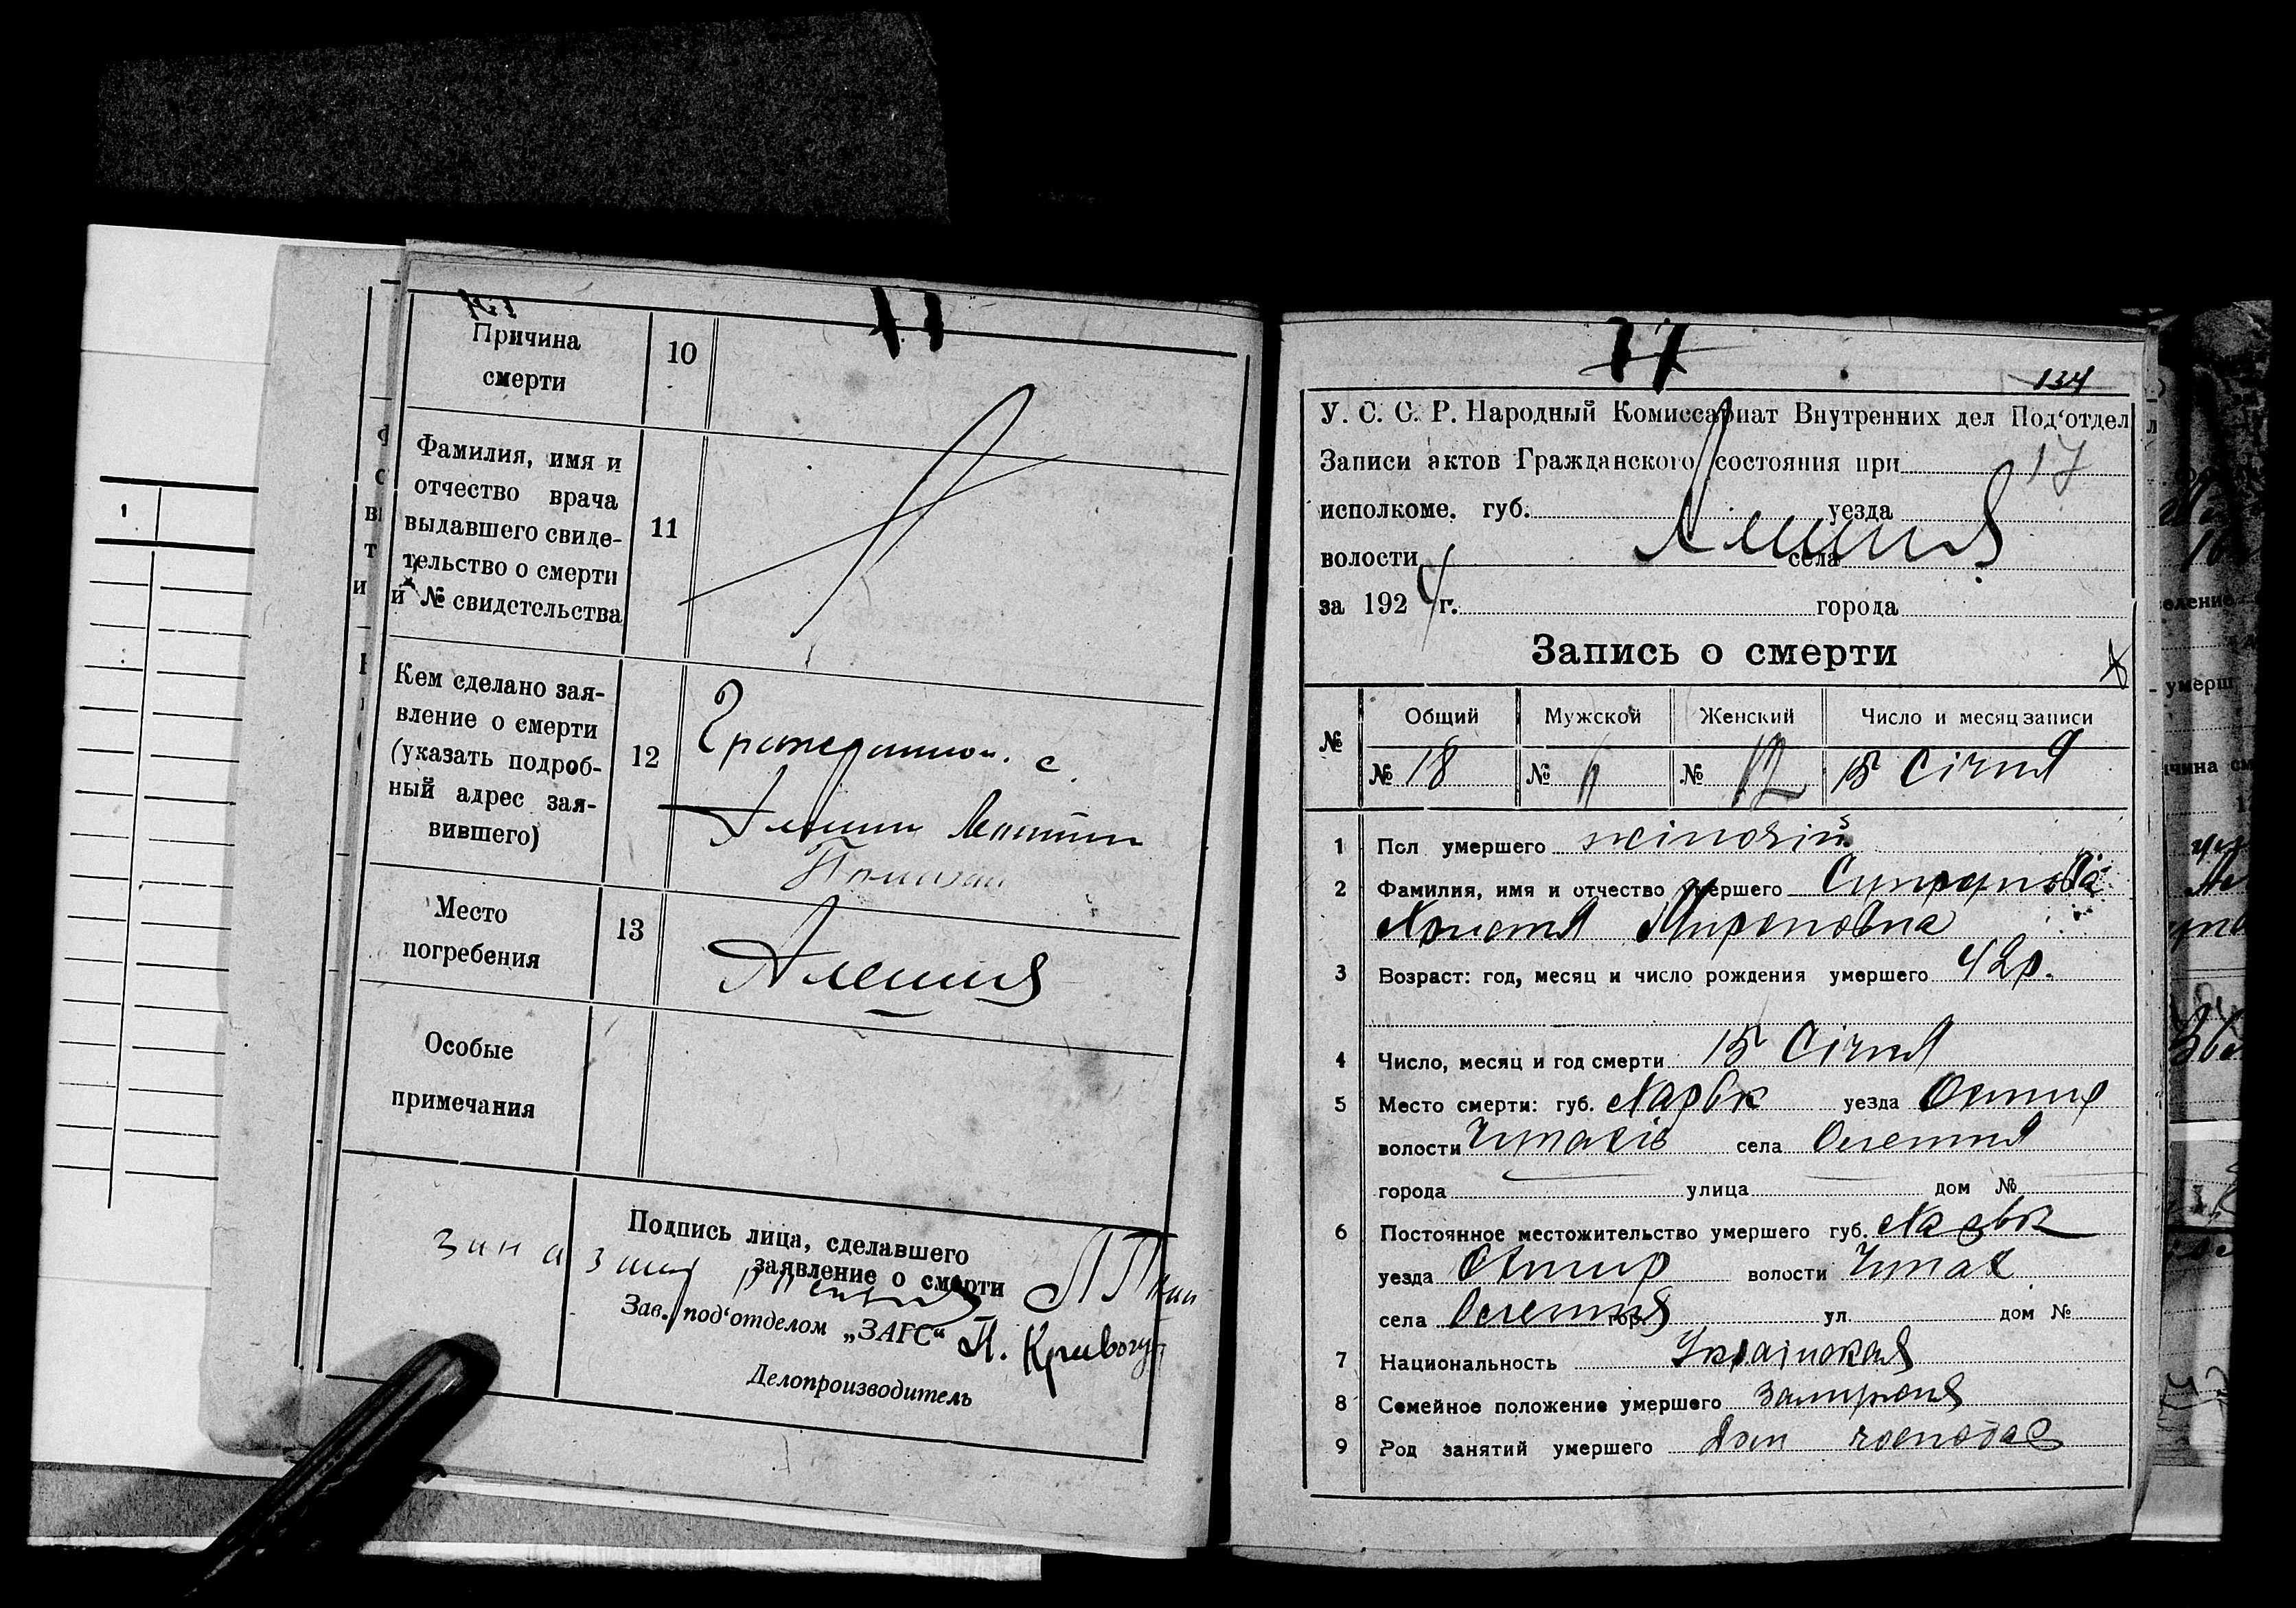 11
Причина
смерти
10
Фамилия, имя и
отчество врача
выдавшего свиде-
тельство о смерти
и № свидетельства
11
Кем сделано зая-
вление о смерти
(указать подроб-
ный адрес зая-
вившего)
12
с.
Место
погребения
13
Алешня
Особые
примечания
Подпись лица, сделавшего
заявление о смерти
Зав. под'отделом „ЗАГС“
Делопроизводитель
1
17
134
У. С. С. Р. Народный Комиссариат Внутренних дел Под'отдел
Записи актов Гражданского состояния при 17
исполкоме. губ. уезда
волости Алешня села
за 1924 г. города
Запись о смерти
№ Общий Мужской Женский Число и месяц записи
№ 18 № № 12 15 Січня
1 Пол умершего жіночій
2 Фамилия, имя и отчество умершего
Христя Мироновна
3 Возраст: год, месяц и число рождения умершего 42 р.
4 Число, месяц и год смерти 15 Січня
5 Место смерти: губ. Харьк уезда Охтир
волости села Олешня
города улица дом №
6 Постоянное местожительство умершего губ. Харьк
уезда Охтир волости Чупах
села Олешня гор. ул. дом №
7 Национальность Українская
8 Семейное положение умершего замужня
9 Род занятий умершего Дом господар